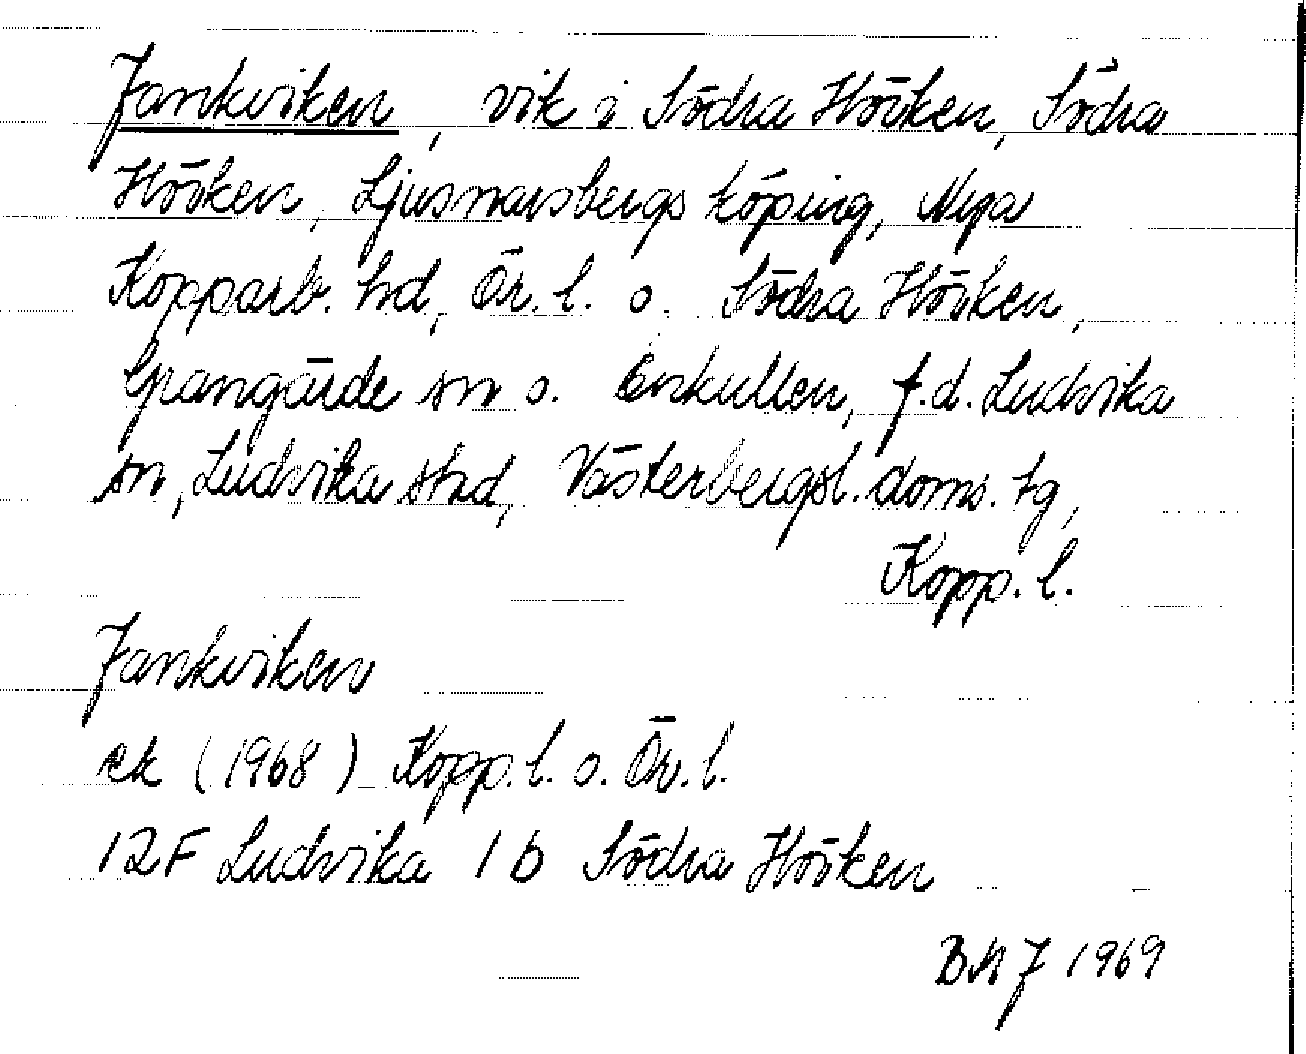 Jankviken, vik i Södra Hörken, Södra
Hörken, Ljusnarsbergs köping, Nya
Kopparb. hd, Ör. l. o. Södra Hörken,
Grangärde sn o. Enkullen, f.d. Ludvika
sn, Ludvika stad, Västerbergsl. doms. tg,
Kopp. l.
Jankviken
ek (1968) Kopp. l. o. Ör. l.
12F Ludvika 1 b Södra Hörken
BMJ 1969